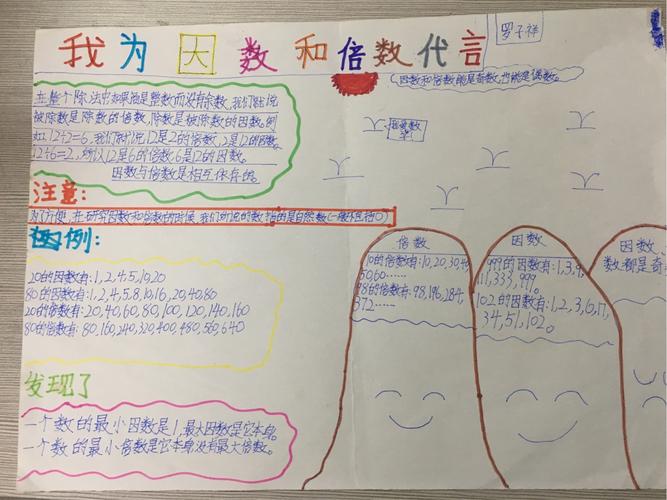 我为因数和倍数代言
罗子祥
因数和倍数能是奇数,也能是偶数。
在整个除法中如果商是整数而没有余数,我们就说
被除数是除数的倍数,除数是被除数的因数。例
如:12÷2=6,我们就说12是2的倍数,2是12的因数。
12÷6=2,所以12是6的倍数,6是12的因数。
因数与倍数是相互依存的。
我爱数
学!
注意:
为了方便,在研究因数和倍数的时候,我们所说的数指的是自然数(一般不包括0)
举例:
20的因数有:1,2,4,5,10,20
80的因数有:1,2,4,5,8,10,16,20,40,80
20的倍数有:20,40,60,80,100,120,140,160
80的倍数有:80,160,240,320,400,480,560,640
发现了
一个数的最小因数是1,最大因数是它本身。
一个数的最小倍数是它本身没有最大倍数。
倍数
10的倍数有:10,20,30,40
50,60……
98的倍数有:98,196,284,
372……
因数
999的因数有:1,3,9,
111,333,999。
102的因数有:1,2,3,6,17,
34,51,102。
因数、
数都是奇